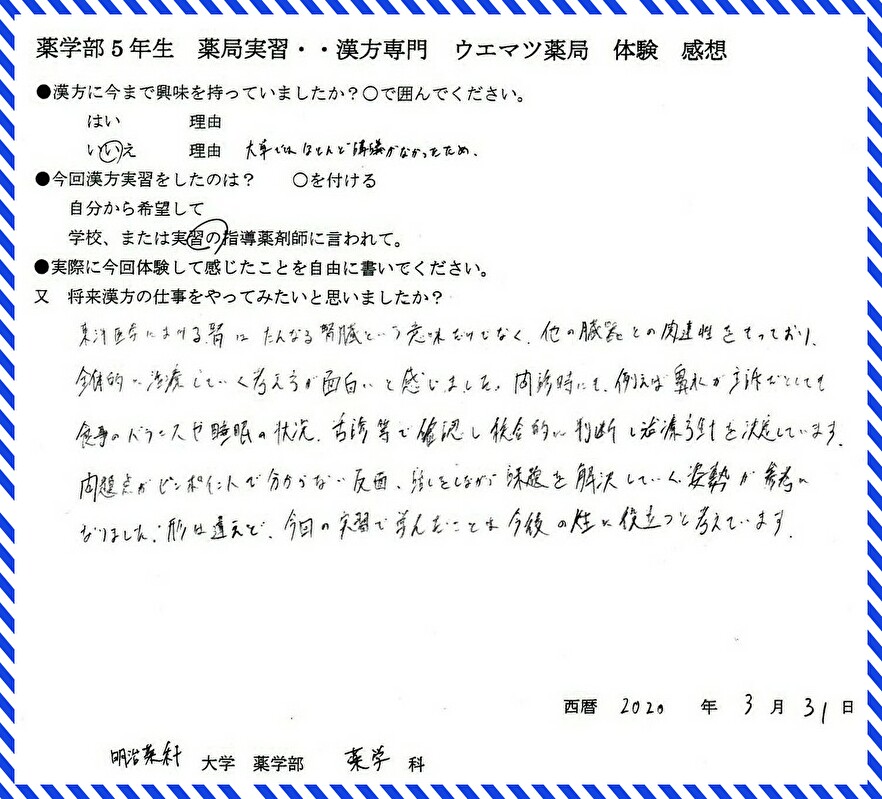 薬学部5年生　薬局実習・・漢方専門　ウエマツ薬局　体験　感想
●漢方に今まで興味を持っていましたか？○で囲んでください。
はい　理由
いいえ　理由　大学ではほとんど講義がなかったため、
●今回漢方実習をしたのは？　○を付ける
自分から希望して
学校、または実習の指導薬剤師に言われて。
●実際に今回体験して感じたことを自由に書いてください。
又　将来漢方の仕事をやってみたいと思いましたか？
東洋医学における腎は たんなる腎臓という意味だけでなく、他の臓器との関連性をもっており、
全体的に治療していく考え方が面白いと感じました。問診時にも、例えば鼻水が主訴だとしても
食事のバランスや睡眠の状況、舌診等で確認し統合的に判断し治療方針を決定しています。
問題点がピンポイントで分からない反面、話しをしながら課題を解決していく姿勢が参考に
なりました。形は違えど、今回の実習で学んだことは今後の人生に役立つと考えています。
西暦　2020　年　3　月　31　日
明治薬科　大学　薬学部　薬学　科